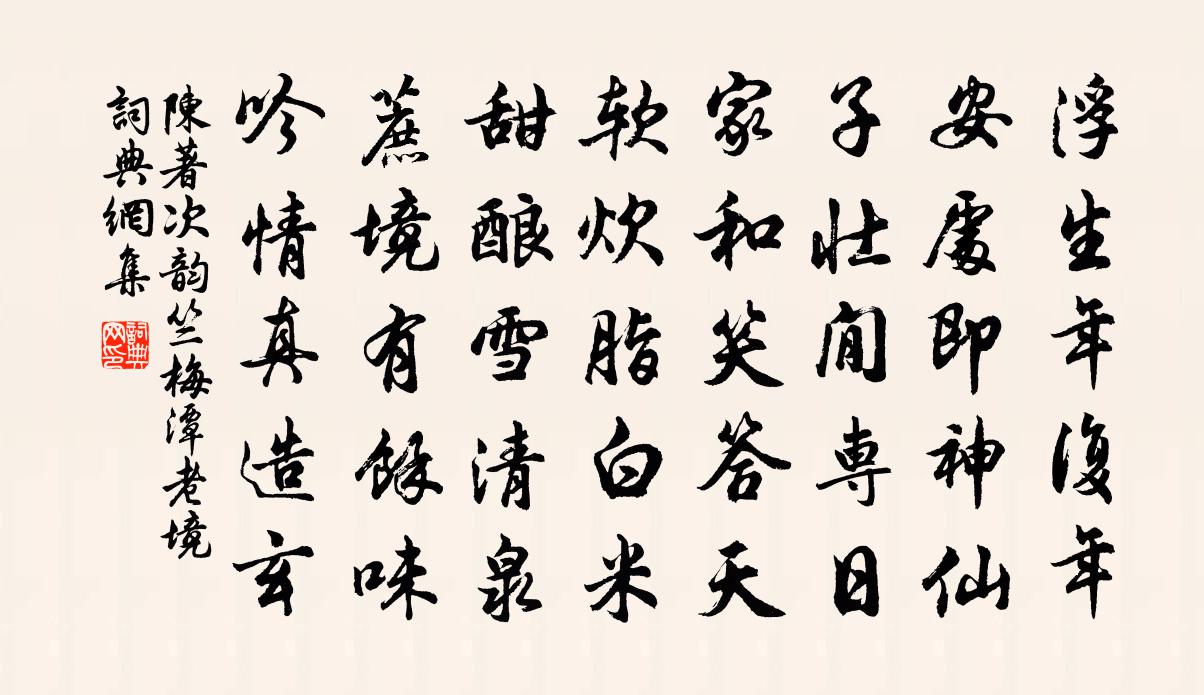 浮生年年復年
安處即神仙
子壯閒專日
家和笑答天
軟炊脂白米
甜酿雪清泉
蔗境有餘味
吟情真造玄
陳著次韵竺梅潭老境
詞典網集
詞典网印